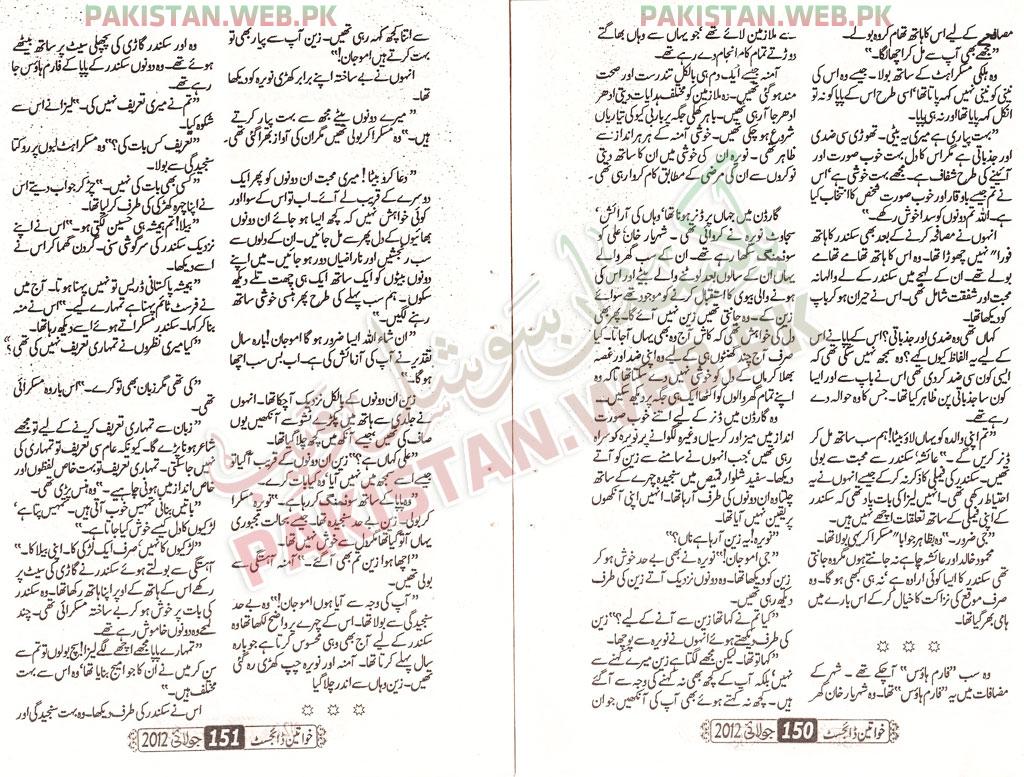 PAKISTAN.WEB.PK
مصافحے کے لیے اس کا ہاتھ تھام کر وہ بولے۔
”مجھے بھی آپ سے مل کر اچھا لگا۔“
وہ ہلکی مسکراہٹ کے ساتھ بولا۔ جیسے وہ اس کی
نینی کو نینی نہیں کہہ پاتا تھا‘ اسی طرح اس کے پاپا کو نہ تو
انکل کہہ پاتا تھا اور نہ ہی پاپا۔
”بہت پیاری ہے میری یہ بیٹی۔ تھوڑی سی ضدی
اور جذباتی ہے مگر اس کا دل بہت خوب صورت اور
آئینے کی طرح شفاف ہے۔ مجھے بہت خوشی ہے‘ اس
نے تم جیسے باوقار اور خوب صورت شخص کا انتخاب کیا
ہے۔ اللہ تم دونوں کو سدا خوش رکھے۔“
انہوں نے مصافحہ کرنے کے بعد بھی سکندر کا ہاتھ
فوراً نہیں چھوڑا تھا۔ وہ اس کا ہاتھ تھامے تھامے
بولے تھے۔ ان کے لہجے میں سکندر کے لیے والہانہ
محبت اور شفقت شامل تھی۔ اس نے حیران ہو کر باپ
کو دیکھا تھا۔
کہاں تھی وہ ضدی اور جذباتی؟ اس کے پاپا نے اس
کے لیے یہ الفاظ کیوں کہے؟ وہ سمجھ نہیں سکی تھی کہ
ایسی کون سی ضد کر دی تھی اس نے باپ سے اور ایسا
کون سا جذباتی پن ظاہر کیا تھا۔ جس کا وہ حوالہ دے
رہے تھے۔
”تم اپنی والدہ کو یہاں لاؤ بیٹا! ہم سب ساتھ مل کر
ڈنر کریں گے۔“ عائشہ! سکندر سے محبت سے بولی
تھیں۔ سکندر کی فیملی کا ذکر نہ کر کے جیسے انہوں نے یہ
احتیاط رکھی تھی۔ انہیں لیزا کی بات یاد تھی کہ سکندر
کے اپنی فیملی کے ساتھ تعلقات اچھے نہیں ہیں۔
”جی ضرور۔“ وہ بظاہر جواباً مسکرا کر ہی بولا تھا۔
محمود خالد اور عائشہ چاہے نہ جانتے ہوں مگر وہ جانتی
تھی سکندر کا ایسا کوئی ارادہ ہے نہ ہی کبھی ہو گا۔ وہ
صرف موقع کی نزاکت کا خیال کر کے اس بارے میں
ہامی بھر گیا تھا۔
☼ ☼ ☼
وہ سب ”فارم ہاؤس“ آ چکے تھے۔ شہر کے
مضافات میں یہ ”فارم ہاؤس“ تھا۔ وہ شہریار خان گھر
سے ملازمین لائے تھے جو یہاں سے وہاں بھاگتے
دوڑتے تمام کام انجام دے رہے تھے۔
آمنہ جیسے ایک دم ہی بالکل تندرست اور صحت
مند ہو گئی تھیں۔ وہ ملازمین کو مختلف ہدایات دیتی ادھر
ادھر جا رہی تھیں۔ باہر کھلی جگہ پر باربی کیو کی تیاریاں
شروع ہو چکی تھیں۔ خوشی آمنہ کے ہر ہر انداز سے
ظاہر تھی۔ نویرہ ان کی خوشی میں ان کا ساتھ دیتی
نوکروں سے ان کی مرضی کے مطابق کام کروا رہی تھی۔
گارڈن میں جہاں پر ڈنر ہونا تھا‘ وہاں کی آرائش‘
سجاوٹ نویرہ نے کروائی تھی۔ شہریار خان علی کو
سوئمنگ سکھا رہے تھے۔ ان کے سب گھر والے
یہاں ان کے سالوں بعد لوٹنے والے بیٹے اور اس کی
ہونے والی بیوی کا استقبال کرنے کو موجود تھے سوائے
زین کے۔ وہ جانتی تھیں زین نہیں آئے گا۔ پھر بھی
دل کی خواہش تھی کہ کاش آج وہ بھی یہاں آ جاتا۔ کیا
صرف آج چند گھنٹوں ہی کے لیے وہ اپنی ضد اور غصہ
بھلا کر ماں کے دل کو خوشی نہیں دے سکتا تھا تاکہ وہ
اپنے تمام گھر والوں کو اکٹھا ایک ہی جگہ پر دیکھ لیں۔
وہ گارڈن میں ڈنر کے لیے اتنے خوب صورت
انداز میں میز اور کرسیاں وغیرہ لگوانے پر نویرہ کو سراہ
رہی تھیں‘ جب انہوں نے سامنے سے زین کو آتے
دیکھا۔ سفید شلوار قمیص میں سنجیدہ چہرے کے ساتھ
چلتا وہ ان دونوں کی طرف آ رہا تھا۔ انہیں اپنی آنکھوں
پر یقین نہیں آیا تھا۔
”نویرہ! یہ زین آ رہا ہے ناں؟“
”جی اموجان!“ نویرہ نے بھی بے حد خوش ہو کر
زین کو دیکھا تھا۔ وہ دونوں نزدیک آتے زین کی طرف
دیکھ رہی تھیں۔
”کیا تم نے کہا تھا زین سے آنے کے لیے؟“ زین
کی طرف دیکھتے ہوئے انہوں نے نویرہ سے پوچھا۔
”کہا تو تھا۔ لیکن مجھے لگتا ہے زین میرے کہنے سے
نہیں‘ بلکہ آپ کے کچھ بھی نہ کہنے کی وجہ سے آ گئے
ہیں۔ کچھ نہ کہتے ہوئے بھی آپ کی آنکھیں جو ان
خواتین ڈائجسٹ 150 جولائی 2012
PAKISTAN.WEB.PK
سے اتنا کچھ کہہ رہی تھیں۔ زین آپ سے پیار بھی تو
بہت کرتے ہیں اموجان!“
انہوں نے بے ساختہ اپنے برابر کھڑی نویرہ کو دیکھا
تھا۔
”میرے دونوں بیٹے مجھ سے بہت پیار کرتے
ہیں۔“ وہ مسکرا کر بولی تھیں مگر ان کی آواز بھرا گئی تھی۔
”دعا کرو بیٹا! میری محبت ان دونوں کو پھر ایک
دوسرے کے قریب لے آئے۔ اب تو اس کے سوا اور
کوئی خواہش نہیں کہ کچھ ایسا ہو جائے ان دونوں
بھائیوں کے دل پھر سے مل جائیں۔ ان کے دلوں سے
سب رنجشیں اور ناراضیاں دور ہو جائیں۔ میں اپنے
دونوں بیٹوں کو ایک ساتھ ایک ہی چھت تلے دیکھ
سکوں۔ ہم سب پہلے کی طرح پھر ہنسی خوشی ساتھ
رہنے لگیں۔“
”ان شاء اللہ ایسا ضرور ہو گا اموجان! بارہ سال
تقدیر نے آپ کی آزمائش کی ہے۔ اب بس سب اچھا
ہو گا۔“
زین ان دونوں کے بالکل نزدیک آ چکا تھا۔ انہوں
نے جلدی سے ہاتھ میں پکڑے ٹشو سے آنکھیں یوں
صاف کی تھیں جیسے آنکھ میں کچھ چلا گیا تھا۔
”علی کہاں ہے؟“ زین ان دونوں کے قریب آ گیا تو
جیسے سمجھ میں نہیں آیا‘ وہ کیا بات کرے۔
”وہ پاپا کے ساتھ سوئمنگ کر رہا ہے۔“ نویرہ مسکرا
کر بولی۔ زین بے حد سنجیدہ تھا۔ جیسے بحالت مجبوری
یہاں آ تو گیا تھا مگر دل سے خوش نہیں تھا۔
”اچھا ہوا زین تم بھی آ گئے۔“ آمنہ آہستگی سے
بولی تھیں۔
”آپ کی وجہ سے آیا ہوں اموجان!“ وہ بے حد
سنجیدگی سے بولا تھا۔ اس کے چہرے پر واضح لکھا تھا وہ
سکندر کے لیے آج بھی وہی محسوس کرتا ہے جو بارہ
سال پہلے کرتا تھا۔ آمنہ اور نویرہ چپ کھڑی رہ گئی
تھیں۔ زین وہاں سے اندر چلا گیا
☼ ☼ ☼
وہ اور سکندر گاڑی کی پچھلی سیٹ پر ساتھ بیٹھے
ہوئے تھے۔ وہ دونوں سکندر کے پاپا کے فارم ہاؤس جا
رہے تھے۔
”تم نے میری تعریف نہیں کی۔“ لیزا نے اس سے
شکوہ کیا۔
”تعریف کس بات کی؟“ وہ مسکراہٹ لبوں پر روکتا
سنجیدگی سے بولا۔
”کسی بھی بات کی نہیں۔“ چڑ کر جواب دیتے اس
نے اپنا چہرہ کھڑکی کی طرف کر لیا تھا۔
”بیلا! تم ہمیشہ ہی حسین لگتی ہو۔“ اس نے اپنے
نزدیک سکندر کی سرگوشی سنی۔ گردن گھما کر اس نے
اسے دیکھا۔
”ہمیشہ پاکستانی ڈریس تو نہیں پہنا ہوتا۔ آج میں
نے فرسٹ ٹائم پہنا ہے تمہارے لیے۔“ اس نے منہ
بنا کر کہا۔ سکندر مسکراتے ہوئے اسے دیکھ رہا تھا۔
”کیا میری نظروں نے تمہاری تعریف نہیں کی تھی؟“
”کی تھی مگر زبان بھی تو کرے۔“ اس بار وہ مسکرائی
تھی۔
”زبان سے تمہاری تعریف کرنے کے لیے تو مجھے
شاعر ہونا پڑے گا۔ کیونکہ عام سی تعریف تو تمہاری کی
نہیں جا سکتی۔ تمہاری تعریف تو بہت خاص لفظوں اور
خاص انداز میں ہونی چاہیے۔“ وہ ہنس پڑی تھی۔
”باتیں بنانی تمہیں خوب آتی ہیں۔ تمہیں پتا ہے‘
لڑکیوں کا دل کیسے خوش کیا جاتا ہے۔“
”لڑکیوں کا نہیں‘ صرف ایک لڑکی کا۔ اپنی بیلا کا۔“
آہستگی سے بولتے ہوئے سکندر نے گاڑی کی سیٹ پر
رکھے اس کے ہاتھ کے اوپر اپنا ہاتھ رکھا تھا۔ وہ سکندر
کی بات پر خوش ہو کر بے ساختہ مسکرائی تھی۔ چند
لمحے وہ دونوں خاموش رہے تھے۔
”تمہارے پاپا مجھے اچھے لگے لیزا! سچ بولوں تو تم سے
سن کر میں نے ان کا جو امیج بنایا تھا‘ وہ اس سے بہت
مختلف ہیں۔“
اس نے سکندر کی طرف دیکھا۔ وہ بہت سنجیدگی اور
خواتین ڈائجسٹ 151 جولائی 2012
PAKISTAN.WEB.PK